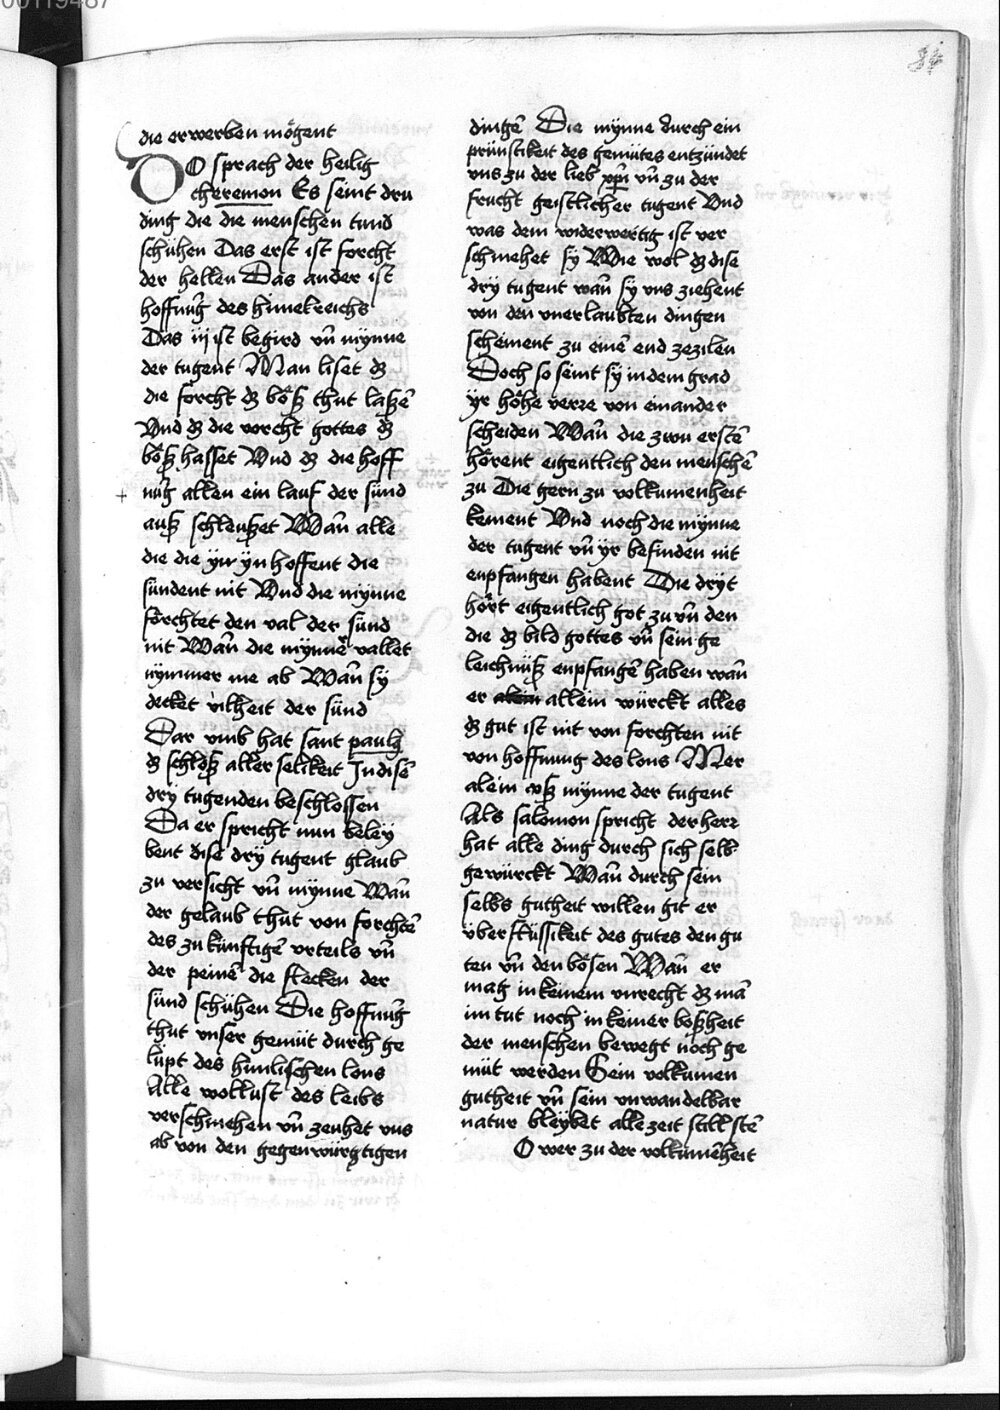 00119487
84
die erwerben mögent
DO sprach der heilig
cheremon Es seint dru
ding die die menschen tund
schühen Das erst ist forcht
der hellen Das ander ist
hoffnu̅g des himelreichs
Das iij ist begird vn̅ mynne
der tugent Man liset dz
die forcht dz böß thut laße̅
Vnd dz die vorcht gottes dz
böß hasset Vnd dz die hoff
nu̅g allen ein lauf der sünd
auß schleußet Wan̅ alle
die die yn hoffent die
sündent nit Vnd die mynne
förchtet den val der sünd
nit Wan̅ die mynne vallet
nymmer me ab Wan̅ sÿ
decket vilheit der sünd
Dar vmb hat sant pauls
dz schloß aller selikeit In dise̅
dry tugenden beschlossen
Da er spricht nun beley
bent dise drÿ tugent glaub
zu versicht vn̅ mynne Wan̅
der gelaub thut von forchte̅
des zu künftige̅ vrteils vn̅
der peine̅ die flecken der
sünd schühen Die hoffnu̅g
thut vnser gemüt durch ge
lüpt des himlischen lons
Alle wollust des leibs
verschmehen vn̅ zeuhet vns
ab von den gegenwürgtigen
dinge̅ Die mynne durch ein
prünstikeit des gemütes entzündet
vns zu der lieb xp̅i vn̅ zu der
frucht geistlicher tugent Vnd
was dem widerwertig ist ver
schmehet sÿ Wie wol dz dise
drÿ tugent wan̅ sÿ vns ziehent
von den vnerlaubten dingen
scheinent zu eine̅ end ze zilen
Doch so seint sÿ in dem grad
yr höhe verre von einander
scheiden Wan̅ die zwu erste̅
hörent eigentlich den mensche̅
zu Die gern zu volkumenheit
kement Vnd noch die mynne
der tugent vn̅ yr befinden nit
enpfangen habent Die dryt
hört eigentlich got zu vn̅ den
die dz bild gottes vn̅ sein ge
leichnüß enpfange̅ haben wan̅
er alein allein würckt alles
dz gut ist nit von forchten nit
von hoffnung des lons Mer
alein auß mynne der tugent
Als salomon spricht der herr
hat alle ding durch sich selb
gewürckt Wan̅ durch sein
selbs gutheit willen git er
überflüssikeit des gutes den gu
ten vn̅ den bösen Wan̅ er
mag in keinem vnrecht dz ma̅
im tut noch in keiner boßheit
der menschen bewegt noch ge
müt werden Sein volkumen
gutheit vn̅ sein vnwandelbar
natur bleybet alle zeit still ste̅
O wer zu der volkume̅heit